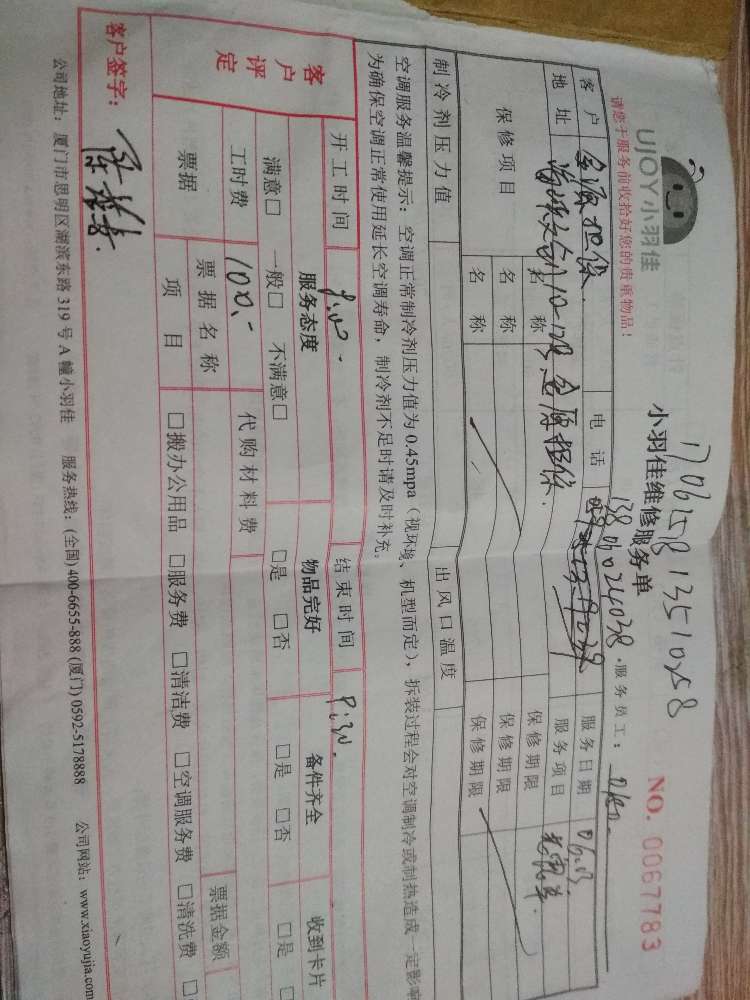 请您于服务前收拾好您的贵重物品!
UJOY小羽佳
170625813510258
小羽佳维修服务单
NO. 0067783
13806024038
服务员工:
客户 金原担保 电话 服务日期
地址 金原担保 服务项目
保修项目 名称 保修期限
名称 保修期限
名称 保修期限
制冷剂压力值 出风口温度
空调服务温馨提示:空调正常制冷剂压力值为0.45mpa(视环境、机型而定),拆装过程会对空调制冷或制热造成一定影响
为确保空调正常使用延长空调寿命,制冷剂不足时请及时补充。
开工时间 结束时间
客户评定 服务态度 物品完好 备件齐全 收到卡片
满意□ 一般□ 不满意□ □是 □否 □是 □否 □是
工时费 100.- 代购材料费
票据 票据名称 票据金额
项目 □搬办公用品 □服务费 □清洁费 □空调服务费 □清洗费
客户签字:
公司地址:厦门市思明区湖滨东路319号A幢小羽佳 服务热线:(全国)400-6655-888 (厦门)0592-5178888 公司网站:www.xiaoyujia.com